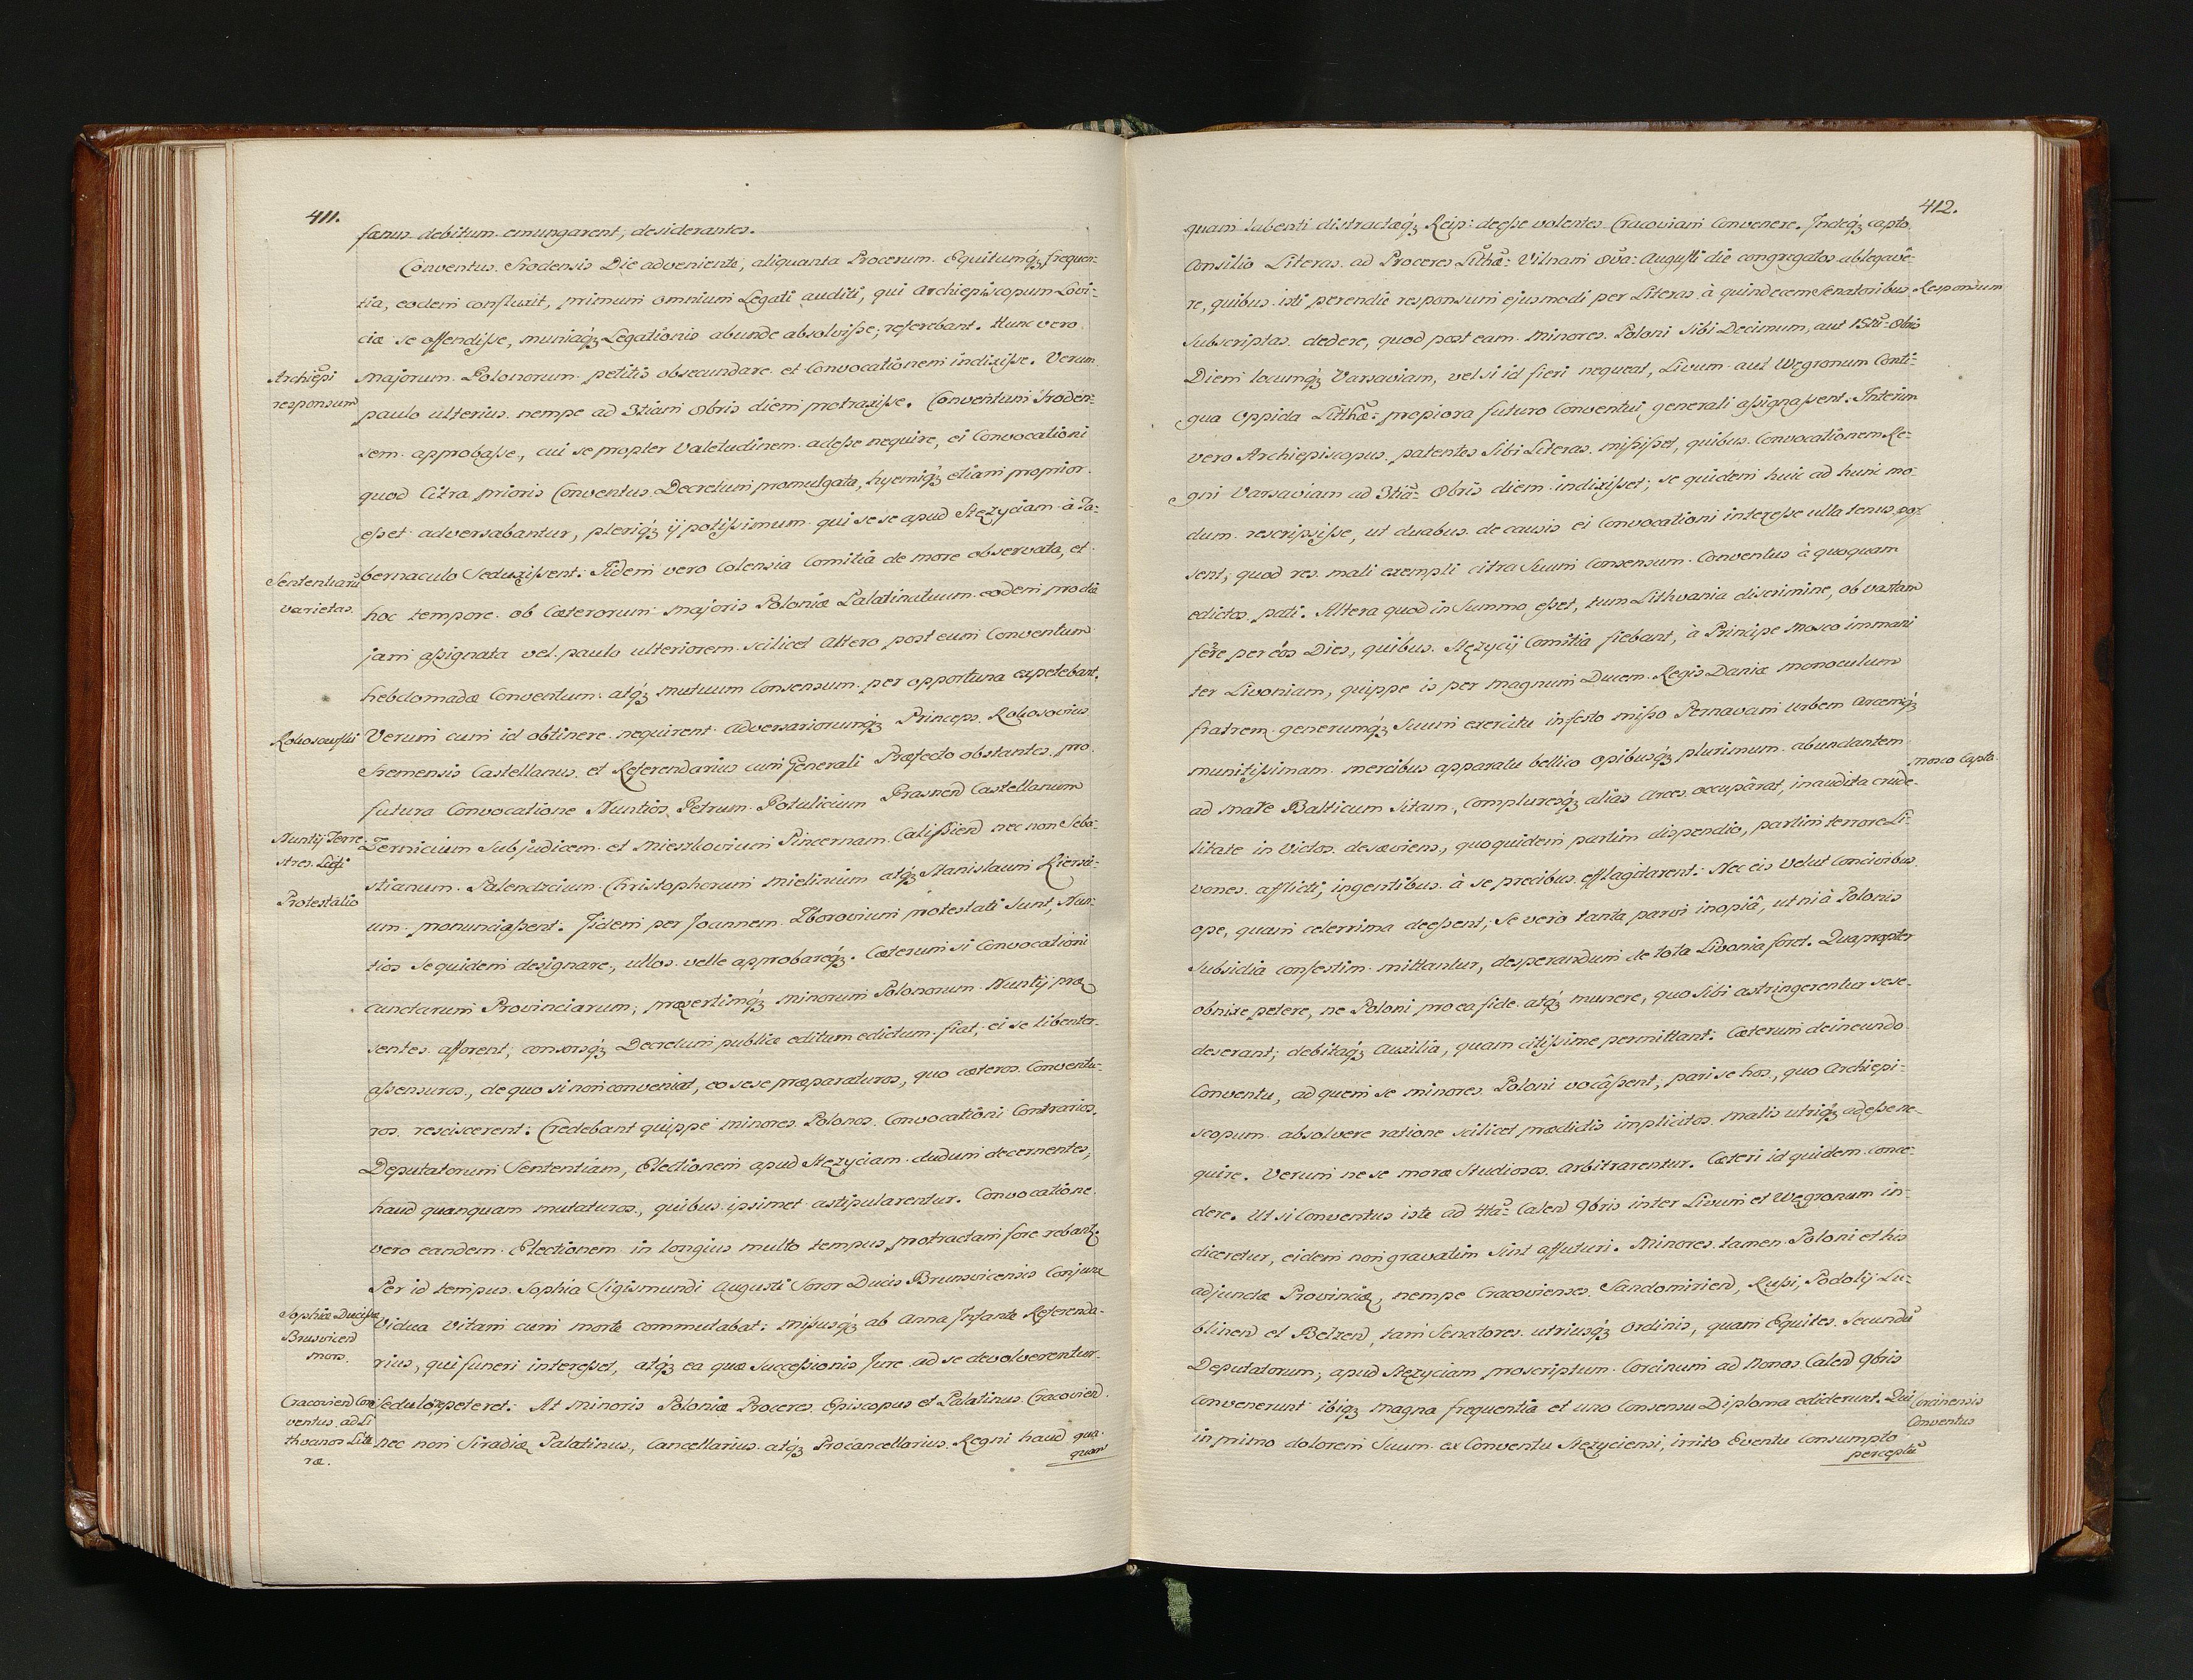 411.
fænus debitum emungarent, desiderantes.
Conventus Srodensis Die adveniente, aliquanta Procerum Equitumq́; frequen-
tia, eodem confluxit, primum omnium Legati auditi, qui Archiepiscopum Lovi-
ciæ se offendiſse, muniaq́; Legationis abunde absolviſse; referebant. Hunc vero
Archiep̃i
responsum
Majorum Polonorum petitis obsecundare et Convocationem indixiſse. Verum
paulo ulterius nempe ad 3tiam 8bris diem protraxiſse. Conventum Sroden-
sem approbaſse, cui se propter Valetudinem adeſse nequire, ei Convocationi
quod Citra prioris Conventus Decretum promulgata, hyemiq́; etiam proprior
eſset adversabantur, pleriq́; ij potiſsimum qui se se apud Stęzyciam à Ta-
Sententiarũ
varietas.
bernaculo Seduxiſsent: Fidem vero Colensia Comitia de more observata, et
hoc tempore ob Cæterorum Majoris Poloniæ Palatinatuum eodem pro die
jam aſsignata vel paulo ulteriorem scilicet altero post eum Conventum
hebdomadæ Conventum: atq́; mutuum Consensum per opportuna expetebant.
Rokosowski
Verum cum id obtinere nequirent Adversariorumq́; Princeps Rokosovius
Sremensis Castellanus et Referendarius cum Generali Præfecto obstantes pro
futura Convocatione Nuntios, Petrum Potulicium Prasnen̄ Castellanum
Nuntij Terre-
stres Lecti
Zernicium Subjudicem et Mieszkovium Pincernam Caliſsien̄ nec non Seba-
stianum Palendzcium Christophorum Mielinium atq́; Stanislaum Kiersi-
Protestatio
um pronunciaſsent: Iidem per Joannem Zborovium protestati Sunt, Nun-
tios Se quidem designare, ullos velle approbareq́;. Cæterum si Convocationi
cunctarum Provinciarum, præsertimq́; minorum Polonorum Nuntij præ
sentes afforent, consorsq́; Decretum publice editum edictum fiat, ei se libenter
aſsensuros, de quo si non conveniat, eo sese præparaturos, quo cæteros Conventu-
ros resciscerent: Credebant quippe minores Polonos Convocationi Contrarios,
Deputatorum Sententiam, Electionem apud Stęzyciam dudum decernentes,
haud quanquam mutaturos, quibus ipsimet astipularentur. Convocatione
vero eandem Electionem in longius multo tempus protractam fore rebantˀ.
Per id tempus Sophia Sigismundi Augusti Soror Ducis Brunsvicensis Conjunx
Sophiæ Duciſsæ
Brusvicen̄
mors.
Vidua Vitam cum morte commutabat: miſsusq́; ab Anna Infante Referenda-
rius, qui funeri intereſset, atq́; ea quæ Succeſsionis Jure ad se devolverentur
Cracovien̄ Con-
ventus ad Li-
thvanos Litte
ræ.
Sedulò repeteret: At minoris Poloniæ Proceres Episcopus et Palatinus Cracovien̄
nec non Siradiæ Palatinus, Cancellarius atq́; Procancellarius Regni haud qua-
quam
412.
quam labenti distractæq́; Reip: deeſse volentes Cracoviam Convenere. Indeq́; capto
Consilio Literas ad Proceres Lithã: Vilnam 8vã: Augusti die congregatos ablegavê-
re, quibus isti perendie responsum ejusmodi per Literas à quindecem Senatoribus
Responsum
Subscriptas dedere, quod post eam Minores Poloni Sibi Decimum, aut 15tũ: 8bris
Diem locumq́; Varsaviam, vel si id fieri nequeat, Livum aut Węgronum Conti-
gua Oppida Litthæ: propiora futuro Conventui generali aſsignaſsent. Interim
vero Archiepiscopus patentes Sibi Literas misiſset, quibus Convocationem Re-
gni Varsaviam ad 3tiã: 8bris diem indixiſset; se quidem huic ad hunc mo-
dum rescripsiſse, ut duabus de causis ei Convocationi intereſse ulla tenus poſ-
sent, quod res mali exempli citra Suum Consensum Conventus à quoquam
edictos pati. Altera quod in Summo eſset, tum Lithvania discrimine, ob vastam
ferè per eos Dies, quibus Stęzycij Comitia fiebant, à Principe Mosco immani
ter Livoniam, quippe is per magnum Ducem Regis Daniæ monoculum
fratrem generumq́; Suum exercitu infesto miſso Pernavam Urbem Arcemq́;
munitiſsimam mercibus apparatu bellico opibusq́; plurimum abundantem
Mosco Capta.
ad mare Balticum Sitam, Compluresq́; alias Arces occupârat, inaudita crude-
litate in Victos desæviens, quo quidem partim dispendio, partim terrore Li-
vones afflicti, ingentibus à se precibus efflagitarent: Nec eis velut Concivibus
ope, quam celerrima deeſsent; Se vero tanta parvi inopiâ, ut ni à Polonis
Subsidia confestim mittantur, desperandum de tota Livonia foret. Quapropter
obnixe petere, ne Poloni pro ea fide atq́; munere, quo Sibi astringerentur sese
deserant; debitaq́; Auxilia, quam citiſsime permittant: Cæterum de ineundo
Conventu, ad quem se minores Poloni vocâſsent, pari se hos, quo Archiepi-
scopum absolvere ratione scilicet prædictis implicitos malis utriq́; adeſse ne-
quire. Verum ne se moræ Studiosos arbitrarentur. Cæteri id quidem conce-
dere. Ut si Conventus iste ad 4tã: Calen̄ 9bris inter Livum et Węgronum in-
diceretur, eidem non gravatim Sint affuturi. Minores tamen Poloni et his
adjunctæ Provinciæ, nempe Cracovienses Sandomirien̄, Ruſsi, Podolij Lu-
blinen̄ et Belzen̄, tam Senatores utriusq́; Ordinis, quam Equites Secundũ
Deputatorum, apud Stęzyciam proscriptum Corcinum ad Nonas Calen̄ 9bris
convenerunt ibiq́; magna frequentia et uno Consensu Diploma ediderunt. Qui
Corcinensis
Conventus
in primo dolorem Suum ex Conventu Stęzyciensi, irrito Eventu Consumpto
perceptũ